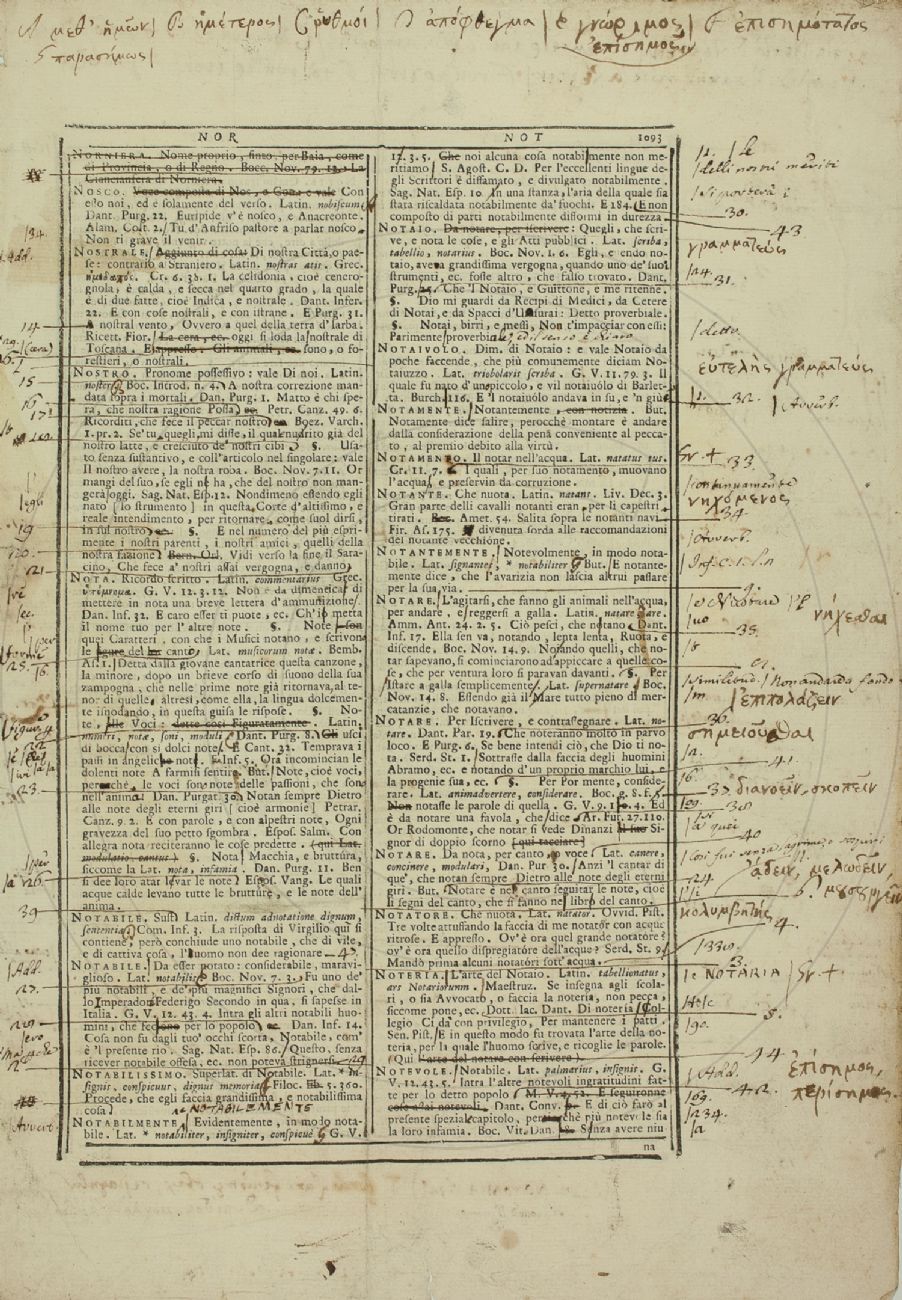 μεθ' ἡμῶν| ἡμέτερος| ῥυθμοί ἀπόφθεγμα | γνώριμος| ἐπισημότατος
ἐπίσημος
παρασήμως|
NOR NOT 1093
NORNIERA. Nome proprio, finto, per Baia, come
di Provincia, o di Regno. Bocc. Nov. 79. 12. La
Ciancianfera di Norniera.
NOSCO. Voce composta di Nos, o Con e vale Con
esso noi, ed è solamente del verso. Latin. nobiscum
Dant. Purg. 22. Euripide v'è nosco, e Anacreonte.
Alam. Colt. 2. Tu d'Anfriso pastore a parlar nosco
Non ti grave il venir.
NOSTRALE. Aggiunto di cosa Di nostra Città, o pae-
se: contrario a Straniero. Latin. nostras atis. Grec.
Cr. 6. 3b. 1. La celidonia, cioè cenero-
gnola, è calda, e secca nel quarto grado, la quale
è di due fatte, cioè Indica, e nostrale. Dant. Infer.
22. E con cose nostrali, e con istrane. E Purg. 31.
A nostral vento, Ovvero a quel della terra d'Iarba.
Ricett. Fior. La cera, ec. oggi si loda la nostrale di
Toscana. E appresso. Gli animali, ec. sono, o fo-
restieri, o nostrali.
NOSTRO. Pronome possessivo: vale Di noi. Latin.
noster Boc. Introd. n. 4. A nostra correzione man-
data sopra i mortali. Dan. Purg. 1. Matto è chi spe-
ra, che nostra ragione Possa ec. Petr. Canz. 49. 6.
Ricorditi, che fece il peccar nostro ec. Boez. Varch.
1. pr. 2. Se' tu quegli, mi disse, il qual nudrito già del
nostro latte, e cresciuto de' nostri cibi §. Usa-
to senza sustantivo, e coll'articolo nel singolare: vale
Il nostro avere, la nostra roba. Boc. Nov. 7. 11. Or
mangi del suo, se egli ne ha, che del nostro non man-
gerà oggi. Sag. Nat. Esp. 12. Nondimeno essendo egli
nato [lo strumento] in questa Corte d'altissimo, e
reale intendimento, per ritornare, come suol dirsi,
in sul nostro ec. §. E nel numero del più espri-
me i nostri parenti, i nostri amici, quelli della
nostra fazione Bern. Orl. Vidi verso la fine il Sara-
cino, Che fece a' nostri assai vergogna, e danno
NOTA. Ricordo scritto. Latin. commentarius Grec.
ὑπόμνημα. G. V. 12. 3. 12. Non è da dimenticar di
mettere in nota una breve lettera d'ammunizione.
Dan. Inf. 32. E caro esser ti puote, ec. Ch'io metta
il nome tuo per l'altre note. §. Note son
quei Caratteri, con che i Musici notano, e scrivono
le figure del lor canto, Lat. musicorum notæ. Bemb.
As. 1. Detta dalla giovane cantatrice questa canzone,
la minore, dopo un brieve corso di suono della sua
zampogna, che nelle prime note già ritornava, al te-
no: di quelle, altresì, come ella, la lingua dolcemen-
te isnodando, in questa guisa le rispose. §. No-
te, alle Voci: dette così Figuratamente. Latin.
numeri, notæ, soni, moduli Dant. Purg. 8. Gli uscì
di bocca, con sì dolci note. E Cant. 32. Temprava i
passi in angeliche note. Inf. 5. Ora incomincian le
dolenti note A farmisi sentire. But. Note, cioè voci,
perocchè le voci son note delle passioni, che son
nell'anima Dan. Purgat. 30. Notan sempre Dietro
alle note degli eterni giri [cioè armonie] Petrar.
Canz. 9. 2. E con parole, e con alpestri note, Ogni
gravezza del suo petto sgombra. Espos. Salm. Con
allegra nota reciteranno le cose predette. (qui Lat.
modulatio, cantus) §. Nota Macchia, e bruttura,
siccome la Lat. nota, infamia. Dan. Purg. 11. Ben
si dee loro atar lavar le note Espos. Vang. Le quali
acque calde levano tutte le brutture, e le note dell'
anima.
NOTABILE. Sust Latin. dictum adnotatione dignum,
sententia Com. Inf. 3. La risposta di Virgilio qui si
contiene, però conchiude uno notabile, che di vile,
e di cattiva cosa, l'huomo non dee ragionare
NOTABILE. Da esser notato: considerabile, maravi-
glioso. Lat. notabilis Boc. Nov. 7. 3. Fu uno de'
più notabili, e de' più magnifici Signori, che dal-
lo Imperador Federigo Secondo in qua, si sapesse in
Italia. G. V. 12. 43. 4. Intra gli altri notabili huo-
mini, che feciono per lo popolo ec. Dan. Inf. 14.
Cosa non fu dagli tuo' occhi scorta, Notabile, com'
è 'l presente rio. Sag. Nat. Esp. 86. Questo, senza
ricever notabile offesa, ec. non poteva strignersi
NOTABILISSIMO. Superlat. di Notabile. Lat. * in-
signis, conspicuus, dignus memoria Filoc. lib. 5. 360.
Procede, che egli faccia grandissima, e notabilissima
cosa
e NOTABILEMENTE
NOTABILMENTE. Evidentemente, in modo nota-
bile. Lat. * notabiliter, insigniter, conspicuè G. V.
12. 3. 5. Che noi alcuna cosa notabilmente non me-
ritiamo S. Agost. C. D. Per l'eccellenti lingue de-
gli Scrittori è diffamato, e divulgato notabilmente.
Sag. Nat. Esp. 10. In una stanza, l'aria della quale sia
stata riscaldata notabilmente da' fuochi. E 184. E non
composto di parti notabilmente disformi in durezza
NOTAIO. Da notare, per iscrivere: Quegli, che scri-
ve, e nota le cose, e gli Atti pubblici. Lat. scriba,
tabellio, notarius. Boc. Nov. 1. 6. Egli, e endo no-
taio, aveva grandissima vergogna, quando uno de' suoi
strumenti, ec. fosse altro, che falso trovato. Dant.
Purg. 24. Che 'l Notaio, e Guittone, e me ritenne.
§. Dio mi guardi da Recipi di Medici, da Cetere
di Notai, e da Spacci d'Usurai: Detto proverbiale.
§. Notai, birri, e messi, Non t'impacciar con essi:
Parimente proverbiale
NOTAIVOLO. Dim. di Notaio: e vale Notaio da
poche faccende, che più comunemente diciam No-
taiuzzo. Lat. triobolaris scriba. G. V. 11. 79. 3. Il
quale fu nato d'un piccolo, e vil notaiuólo di Barlet-
ta. Burch. 116. E 'l notaiuólo andava in su, e 'n giù
NOTAMENTE. Notantemente, con notizia. But.
Notamente dice salire, perocchè montare è andare
dalla considerazione della pena conveniente al pecca-
to, al premio debito alla virtù.
NOTAMENTO. Il notar nell'acqua. Lat. natatus tus.
Cr. 11. 7. I quali, per suo notamento, muovano
l'acqua, e preservin da corruzione.
NOTANTE. Che nuota. Latin. natans. Liv. Dec. 3.
Gran parte delli cavalli notanti eran per li capestri
tirati. Boc. Amet. 54. Salita sopra le notanti navi
Fir. As. 175. divenuta sorda alle raccomandazioni
del notante vecchione.
NOTANTEMENTE. Notevolmente, in modo nota-
bile. Lat. signanter, * notabiliter But. E notante-
mente dice, che l'avarizia non lascia altrui passare
per la sua via.
NOTARE. L'agitarsi, che fanno gli animali nell'acqua,
per andare, e reggersi a galla. Latin. natare
Amm. Ant. 24. 2. 5. Ciò pesci, che notano Dant.
Inf. 17. Ella sen va, notando, lenta lenta, Ruota, e
discende. Boc. Nov. 14. 9. Notando quelli, che no-
tar sapevano, si cominciarono ad appiccare a quelle co-
se, che per ventura loro si paravan davanti. §. Per
Istare a galla semplicemente. Lat. supernatare Boc.
Nov. 14. 8. Essendo già il Mare tutto pieno di mer-
catanzie, che notavano.
NOTARE. Per Iscrivere, e contrassegnare. Lat. no-
tare. Dant. Par. 19. Che noteranno molto in parvo
loco. E Purg. 6. Se bene intendi ciò, che Dio ti no-
ta. Serd. St. 1. Sottrasse dalla faccia degli huomini
Abramo, ec. e notando d'un proprio marchio lui, e
la progenie sua, ec. §. Per Por mente, conside-
rare. Lat. animadvertere, considerare. Boc. g. 8. f. 5.
Non notasse le parole di quella. G. V. 9. 110. 4. Ed
è da notare una favola, che dice Ar. Fur. 27. 110.
Or Rodomonte, che notar si vede Dinanzi il suo Si-
gnor di doppio scorno [qui tacciare]
NOTARE. Da nota, per canto, o voce. Lat. canere,
concinere, modulari, Dan. Pur. 30. Anzi 'l cantar di
que', che notan sempre Dietro alle note degli eterni
giri. But. Notare è nel canto seguitar le note, cioè
li segni del canto, che si fanno nel libro del canto.
NOTATORE. Che nuota. Lat. natator. Ovvid. Pist.
Tre volte attuffando la faccia di me notator con acque
ritrose. E appresso. Ov'è ora quel grande notatore?
ov'è ora quello dispregiatore dell'acque? Serd. St. 9.
Mandò prima alcuni notatori sott'acqua.
NOTERIA. L'arte del Notaio. Latin. tabellionatus,
ars Notariorum. Maestruz. Se insegna agli scola-
ri, o sia Avvocato, o faccia la noteria, non pecca,
siccome pone, ec. Dott. Iac. Dant. Di noteria Col-
legio Ci dà con privilegio, Per mantenere i patti.
Sen. Pist. E in questo modo fu trovata l'arte della no-
teria, per la quale l'huomo scrive, e ricoglie le parole.
(Qui l'arte del notare con scrivere)
NOTEVOLE. Notabile. Lat. palmarius, insignis. G.
V. 12. 43. 5. Intra l'altre notevoli ingratitudini fat-
te per lo detto popolo M. V. 4. 52. E seguironne
cose assai notevoli. Dant. Conv. E di ciò farò al
presente spezial capitolo, perocchè più notevole sia
la loro infamia. Boc. Vit. Dan. Sanza avere niu
na
30.
43
γραμματεύς
31.
|detto
εὐτελής γραμματεύς
32. |Avverb.
33.
|continuamente
νηχόμενος
34
|Avverb.
νήχεσθαι
35.
|ἐπιπολάζειν
36.
σημειοῦσθαι
διανοεῖν, σκοπεῖν
38
40
ᾄδειν, μελωδεῖν,
κολυμβητής
|e NOTARIA
|90.
44
ἐπίσημος,
|Add. 42.
περίσημος.
|234.
14
15
|egli
19
21.
25.
23.
39
|Add.
|Avverb.